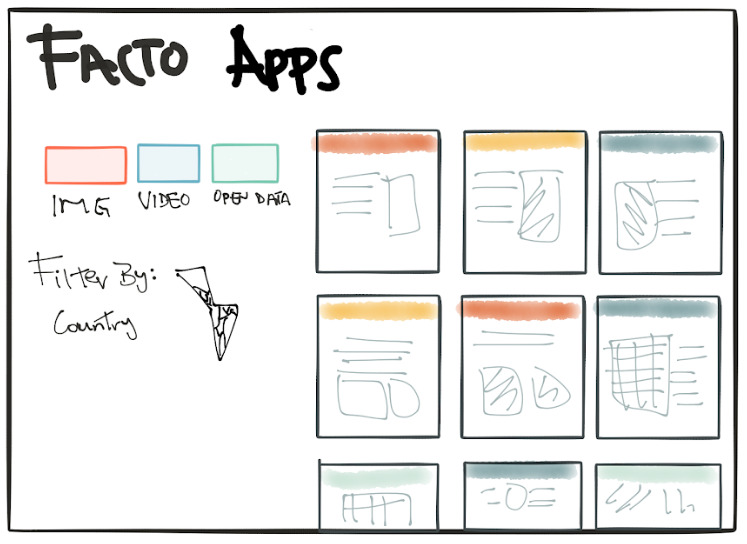 FACTO APPS
IMG
VIDEO
OPEN DATA
Filter By:
Country